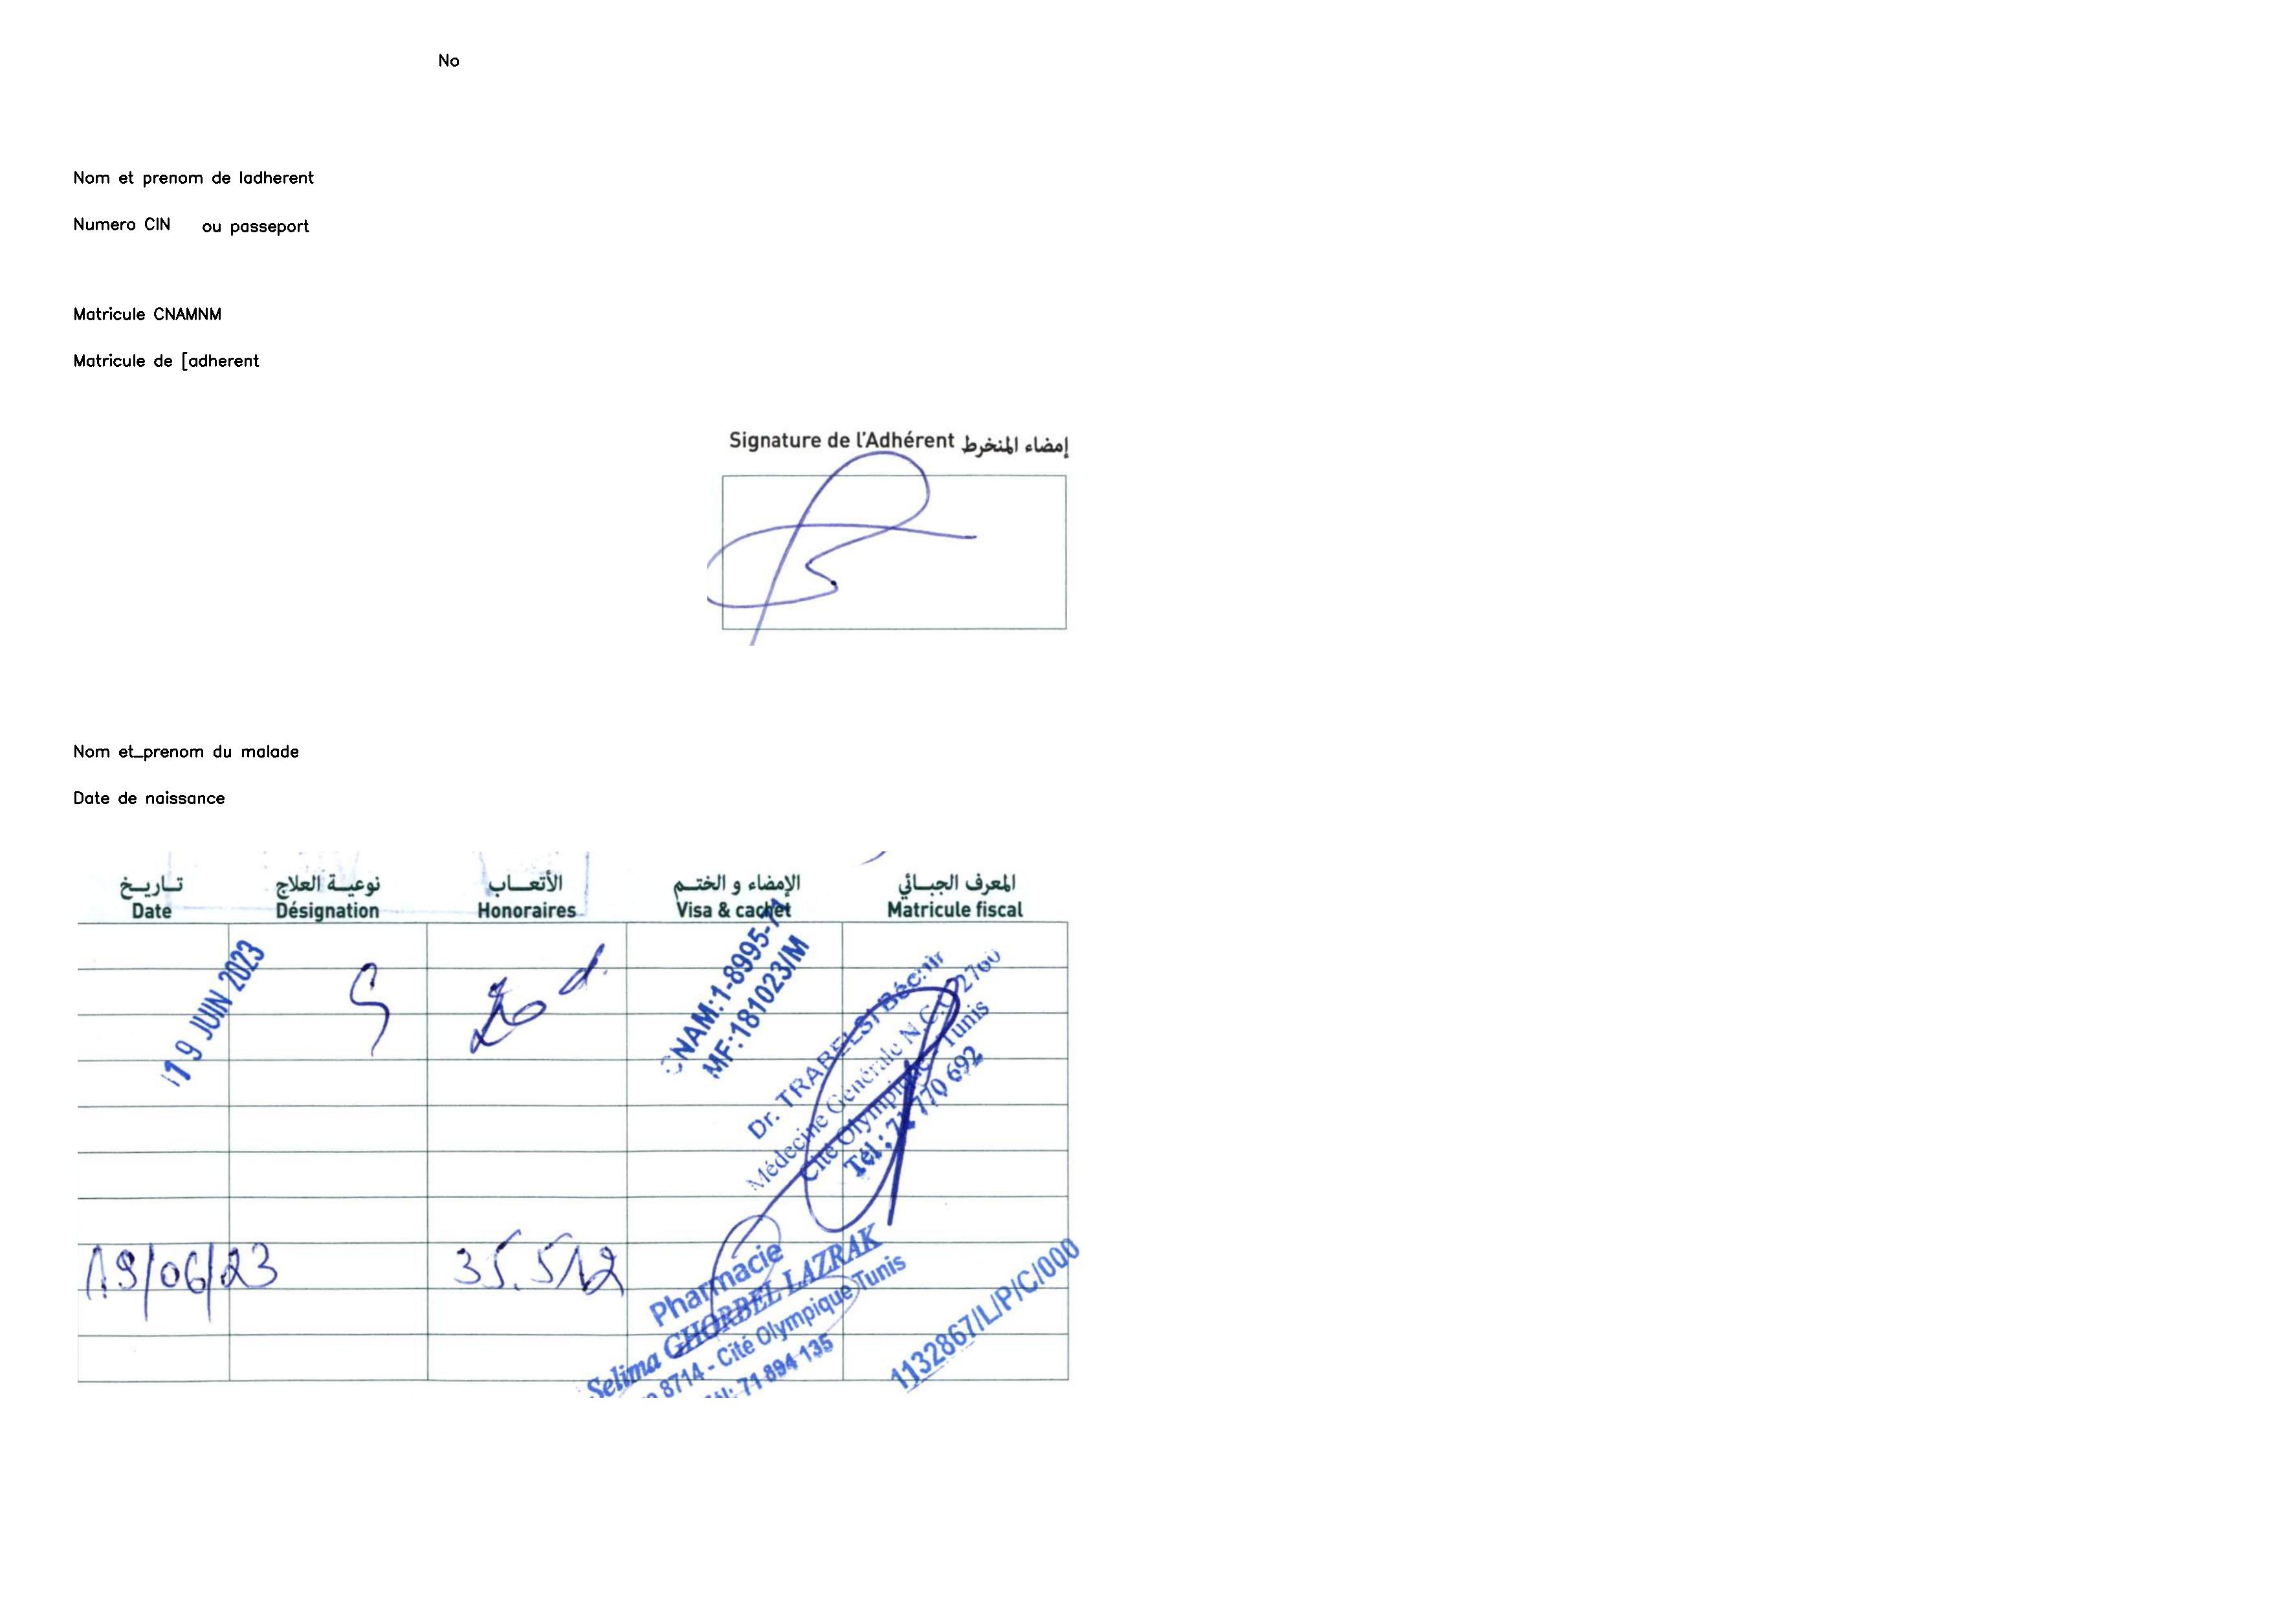 No
Nom et prenom de ladherent
Numero CIN ou passeport
Matricule CNAMNM
Matricule de [adherent
Signature de l'Adhérent إمضاء المنخرط
Nom et_prenom du malade
Date de naissance
تاريخ نوعية العلاج الأتعاب الإمضاء و الختم المعرف الجبائي
Date Désignation Honoraires Visa & cachet Matricule fiscal
19 JUIN 2023
CNAM:1-8995-71
MF:181023/M
Dr. TRABELSI Béchir
Médecine Générale N.C.
Cité Olympique - Tunis
Tél : 71 770 692
19/06/23 35.512
Pharmacie
Selima GHORBEL LAZRAK
8714 - Cité Olympique Tunis
Tél: 71 894 135
1132867/L/P/C/000